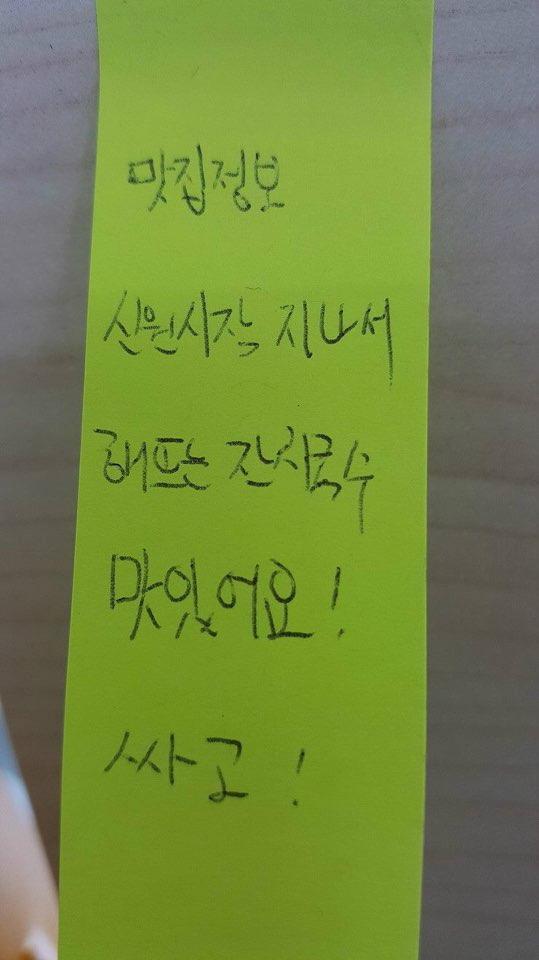 맛집정보
신원시장 지나서
해뜨는 잔치국수
맛있어요!
싸고!